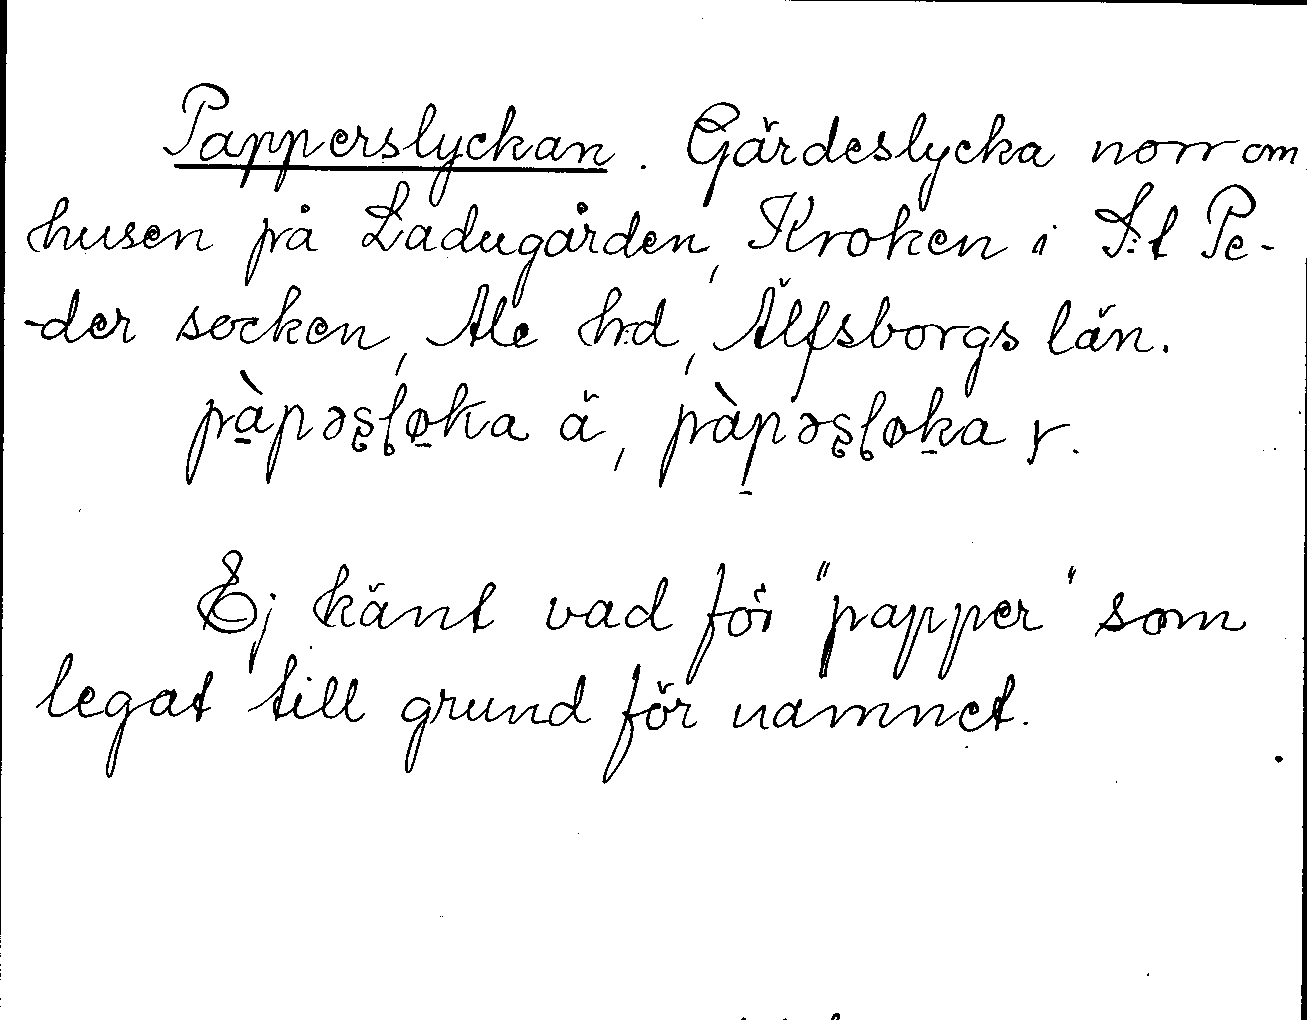 Papperslyckan. Gärdeslycka norr om
husen på Ladugården, Kroken i S:t Pe-
-der socken, Ale h:d, Älfsborgs län.
pàpəʂɭøka ä, pàpəʂɭøka y.
Ej känt vad för "papper" som
legat till grund för namnet.